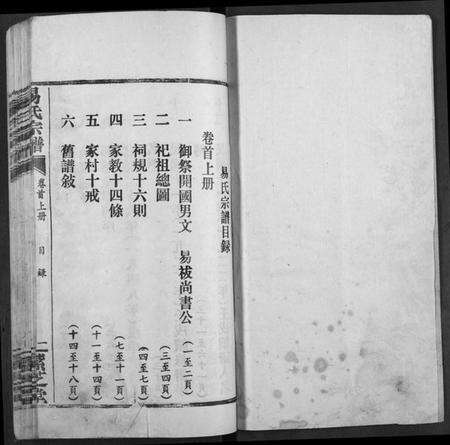 易氏宗譜目録
卷首上册
一 御祭開國男文 易祓尚書公 (一至二頁)
二 祀祖總圖 (三至四頁)
三 祠規十六則 (四至七頁)
四 家教十四條 (七至十一頁)
五 家村十戒 (十一至十四頁)
六 舊譜敍 (十四至十八頁)
易氏宗譜
卷首上册
目録
一